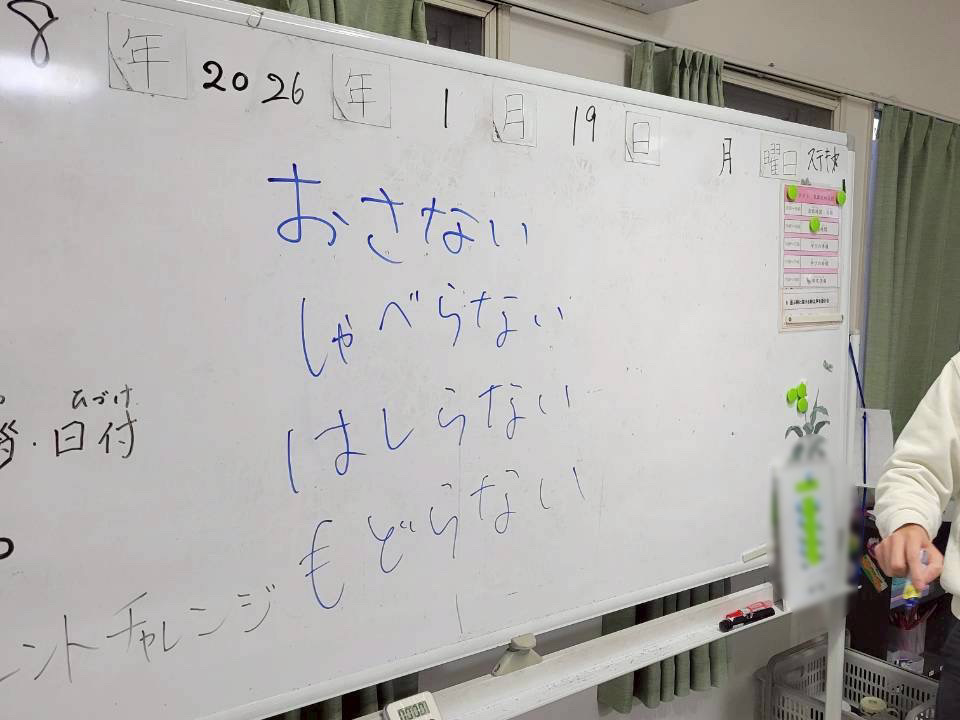 8 年 2026 年 1 月 19 日 月 曜日 ステキな
おさない
しゃべらない
はしらない
もどらない
ひづけ
・日付
ントチャレンジ